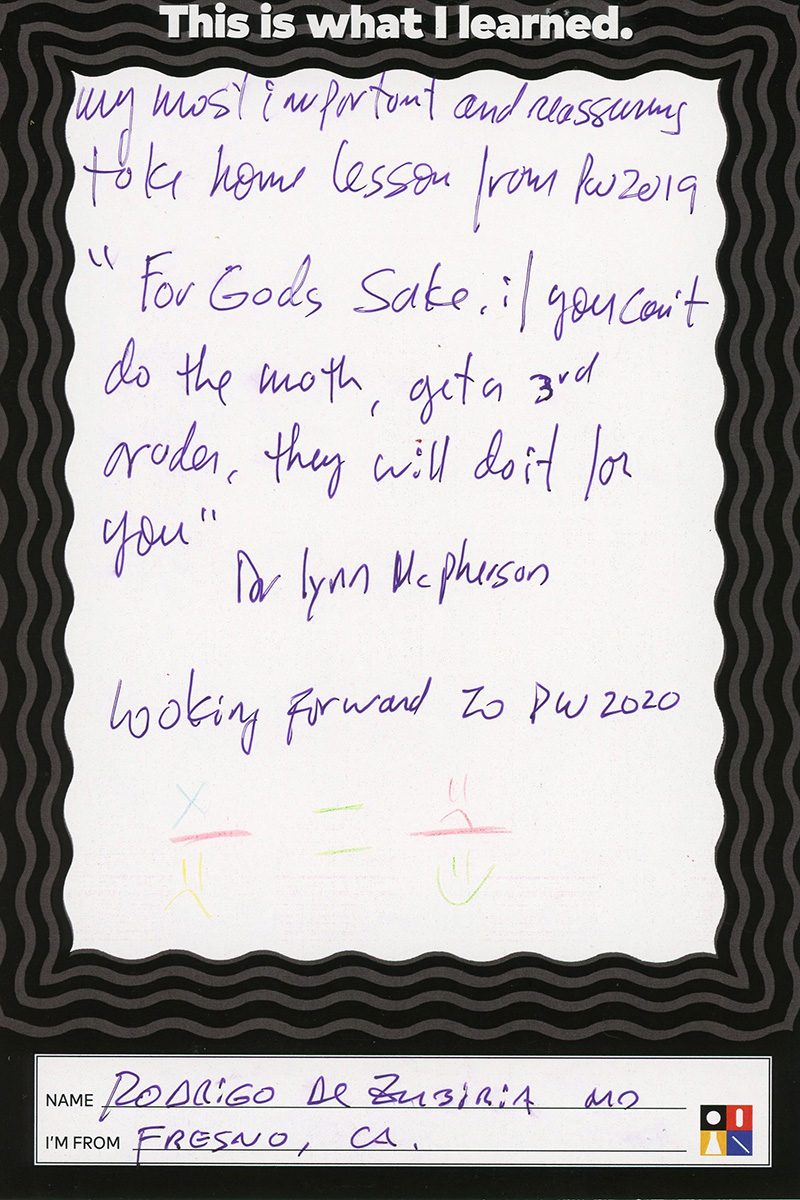 This is what I learned.
my most important and reassuring
take home lesson from PW2019
"For Gods Sake, if you can't
do the math, get a 3rd
grader, they will do it for
you"
Dr Lynn McPherson
Looking forward to PW 2020
X = 
NAME RODRIGO De ZUBIRIA MD
I'M FROM FRESNO, CA.